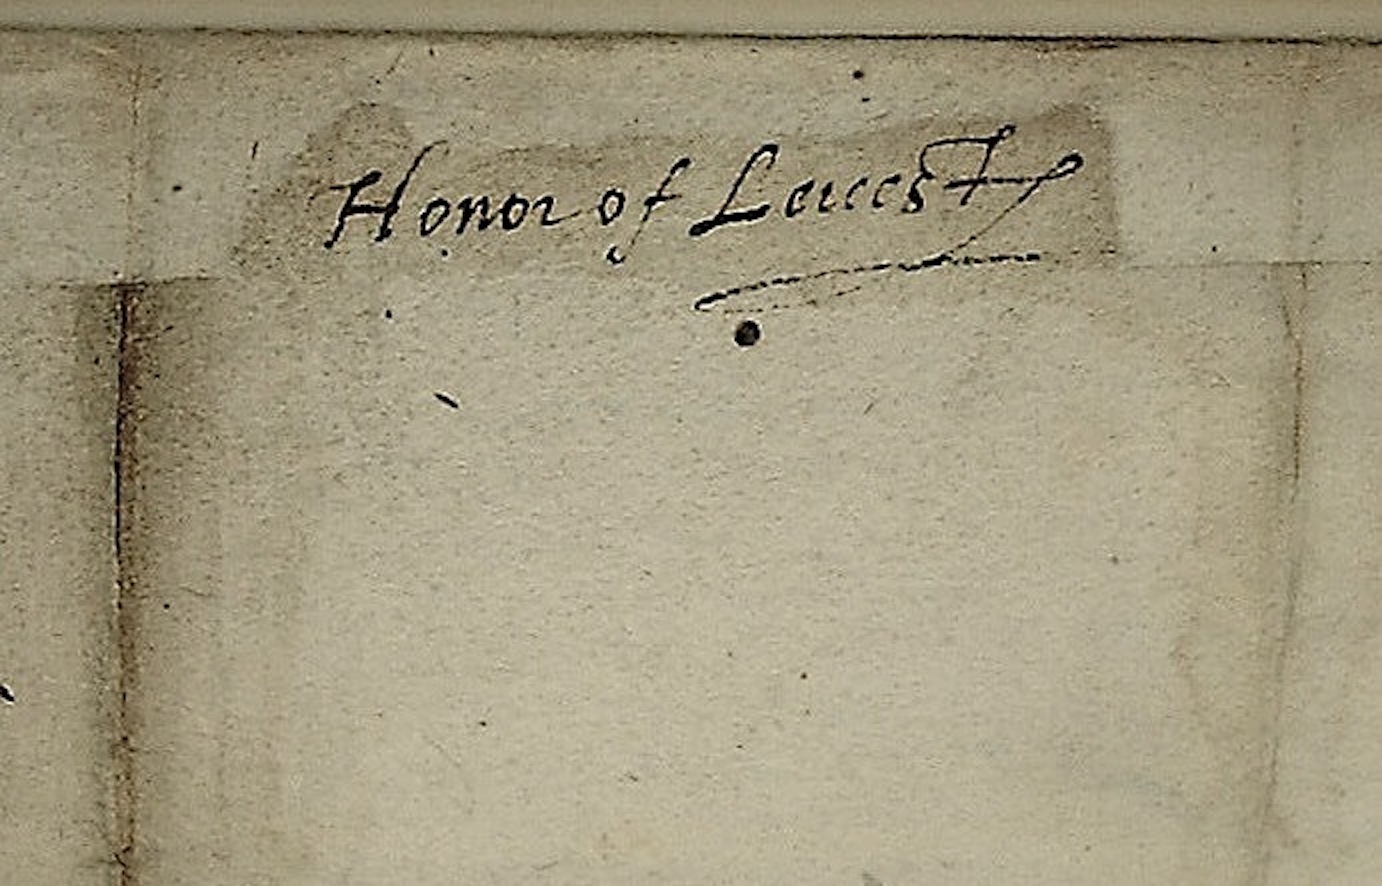 Honor of Leicest